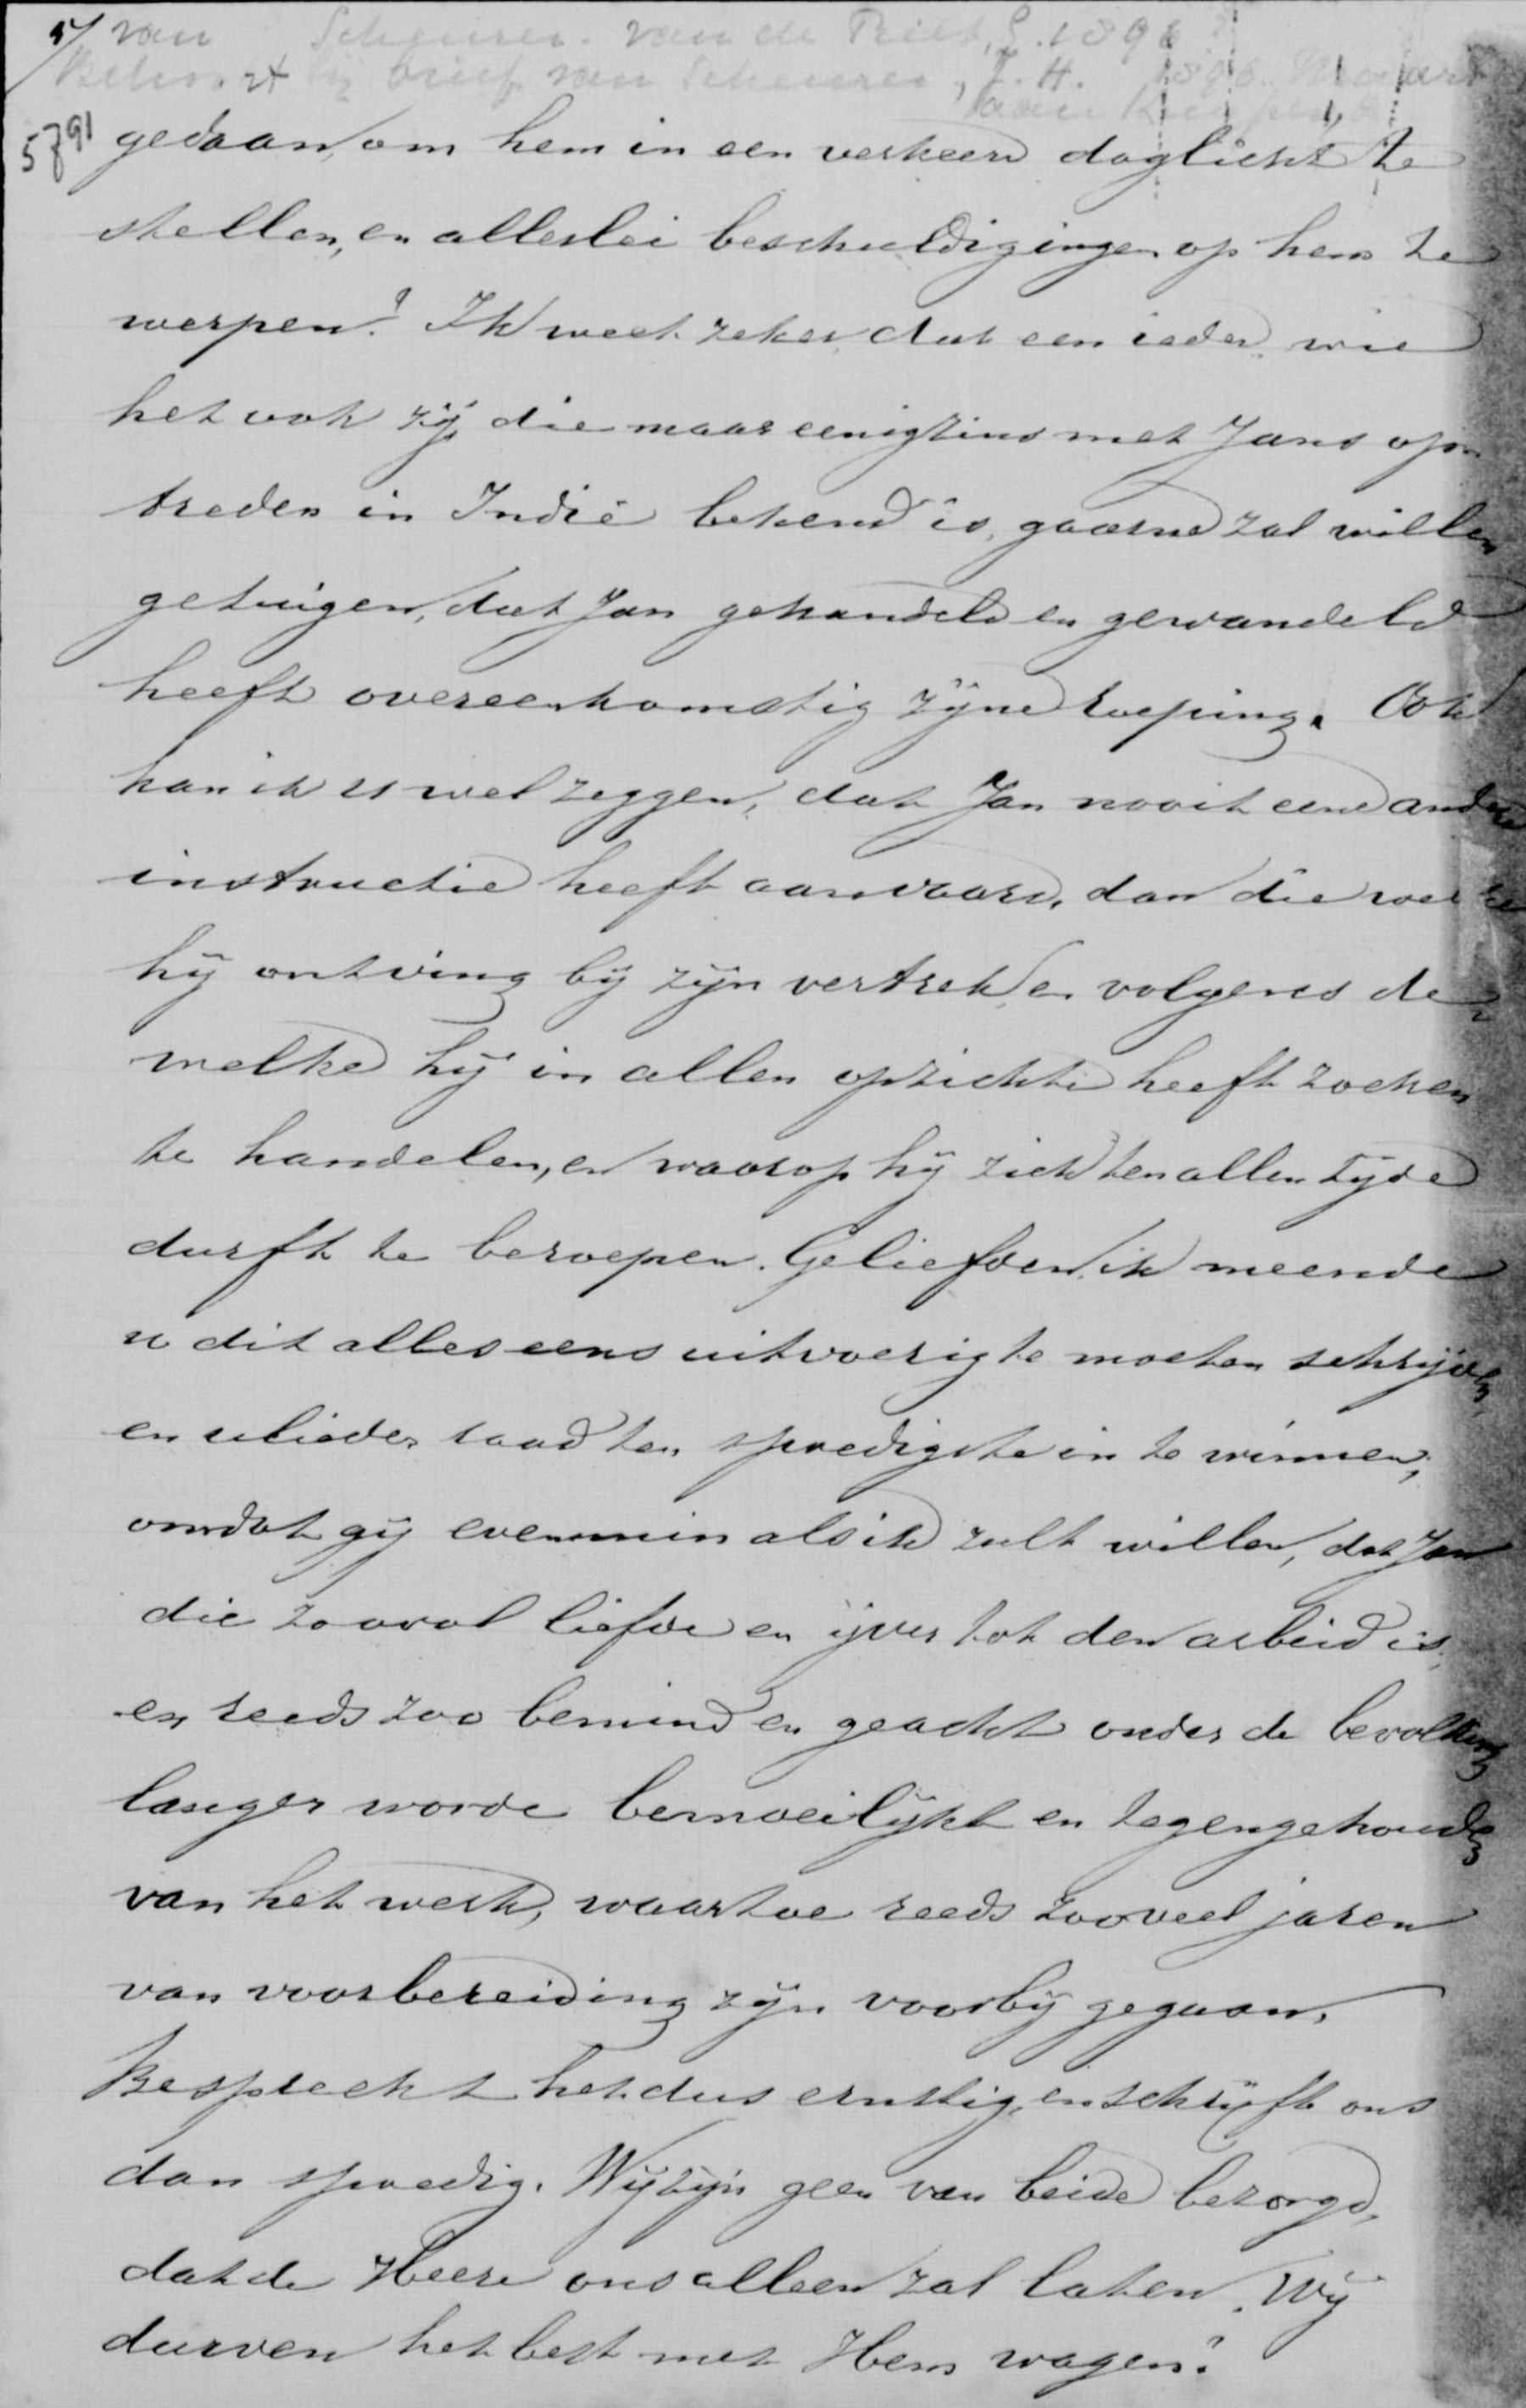 5/ van Scheurer - van de Triet, S. 1896
Behoort bij brief van Scheurer, J. H. 1896 Maart
aan Kuyper, A
5791
gedaan, om hem in een verkeerd daglicht te
stellen, en allerlei beschuldigingen op hem te
werpen? Ik weet zeker dat een ieder, wie
het ook zij, die maar eenigzins met Jans op-
treden in Indië bekend is, gaarne zal willen
getuigen, dat Jan gehandeld en gewandeld
heeft overeenkomstig zijne roeping. Ook
kan ik u wel zeggen, dat Jan nooit eene andere
instructie heeft aanvaard, dan die welke
hij ontving bij zijn vertrek, en volgens de
welke hij in allen opzichte heeft zoeken
te handelen, en waarop hij zich ten allen tijde
durft te beroepen. Geliefden, ik meende
u dit alles eens uitvoerig te moeten schrijven,
en ulieder raad ten spoedigste in te winnen,
omdat gij evenmin als ik zult willen, dat Jan
die zoovol liefde en ijver tot den arbeid is,
en reeds zoo bemind en geacht onder de bevolking
langer worde bemoeilijkt en tegengehouden
van het werk, waartoe reeds zooveel jaren
van voorbereiding zijn voorbij gegaan.
Bespreekt het dus ernstig, en schrijft ons
dan spoedig. Wij zijn geen van beide bezorgd,
dat de Heere ons alleen zal laten. Wij
durven het best met Hem wagen!